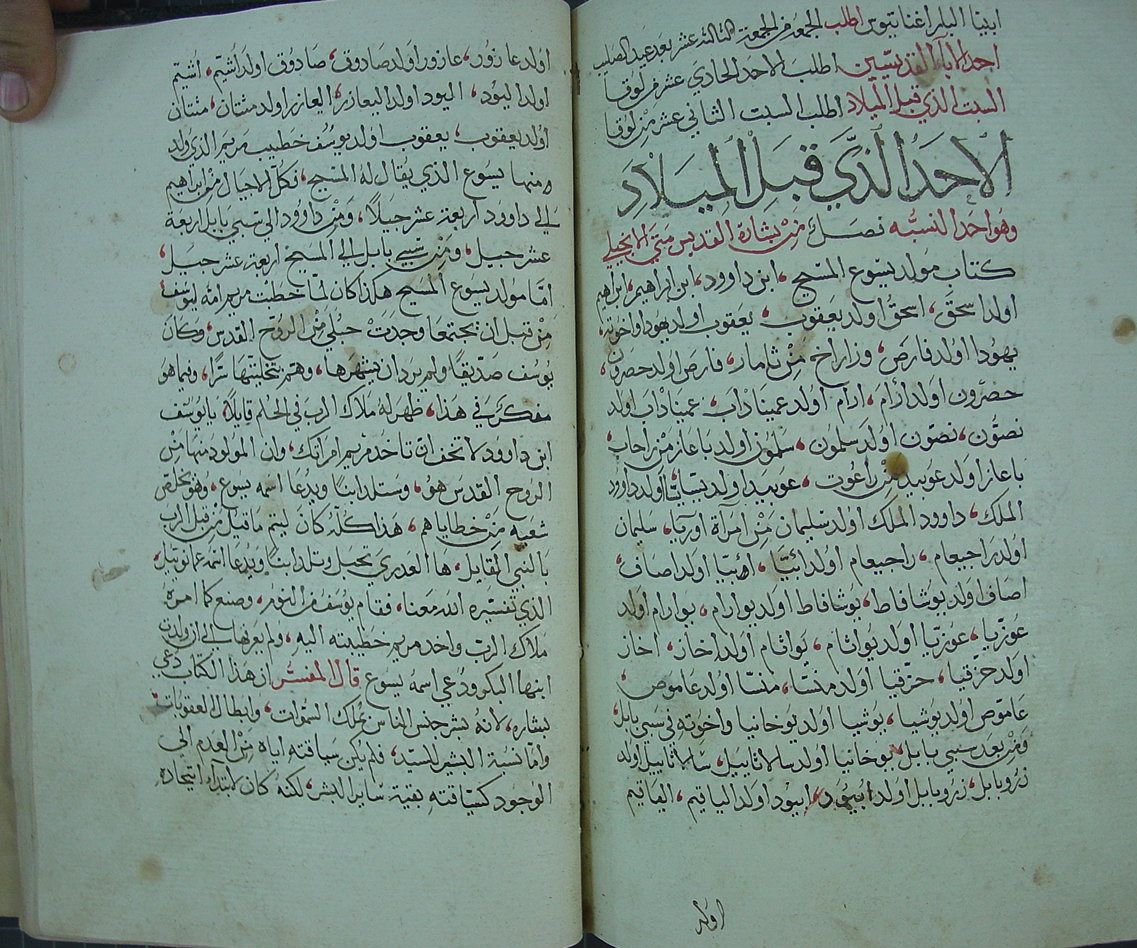 ابينا البار اغناتيوس اطلب الجمعه من الجمعة الثالثة عشر بعد عيد الصليب
احد الابآ القديسين اطلب الاحد الحادي عشر من لوقا
السبت الذي قبل الميلاد اطلب السبت الثاني عشر من لوقا
الاحد الذي قبل الميلاد
وهو احد النسبه فصل من بشارة القديس متي الانجيلي
كتاب مولد يسوع المسيح، ابن داوود، ابن ابراهيم، ابراهيم
اولد اسحق، اسحق اولد يعقوب، يعقوب اولد يهودا واخوته،
يهودا اولد فارص، وزاراخ من ثامار، فارص اولد حصرون،
حصرون اولد ارام، ارام اولد عميناداب، عميناداب اولد
نصون، نصون اولد سلمون، سلمون اولد باعاز من راحاب،
باعاز اولد عوبيد من راعوت، عوبيد اولد يسا، يسا اولد داوود
الملك، داوود الملك اولد سليمان من امرآة اوريا، سليمان
اولد راجيعام، راجيعام اولد ابيا، ابيا اولد اصاف،
اصاف اولد يوشافاط، يوشافاط اولد يوارام، يوارام اولد
عوزيا، عوزيا اولد يواثام، يواثام اولد احاز، احاز
اولد حزقيا، حزقيا اولد منسا، منسا اولد عاموص،
عاموص اولد يوشيا، يوشيا اولد يوخانيا واخوته في سبي بابل،
ومن بعد سبي بابل، يوخانيا اولد سالاثاييل، سالاثاييل اولد
زروبابل، زروبابل اولد ابيود، ابيود اولد الياقيم، الياقيم
اولد
اولد عازور، عازور اولد صادوق، صادوق اولد اشيم، اشيم
اولد اليود، اليود اولد اليعازر، العازر اولد متثان، متثان
اولد يعقوب، يعقوب اولد يوسف خطيب مريم الذي ولد
منها يسوع الذي يقال له المسيح، فكل الاجيال من ابراهيم
الي داوود اربعة عشر جيلا، ومن داوود الي سبي بابل اربعة
عشر جيل، ومن سبي بابل الي المسيح اربعة عشر جيل،
امّا مولد يسوع المسيح هكذا كان لما خطبت مريم امه ليوسف
من قبل ان يجتمعا وجدت حبلي من الروح القدس، وكان
يوسف صديقا ولم يرد ان يشهرها، وهم بتخليتها سرا، وفيما هو
مفكر في هذا، ظهر له ملاك الرب في الحلم قايلا، يا يوسف
ابن داوود لا تخف ان تاخد مريم امراتك، وان المولود منها من
الروح القدس هو، وستلد ابنا ويدعا اسمه يسوع، وهو يخلص
شعبه من خطاياهم، هذا كله كان ليتم ما قيل من قبل الرب
بالنبي القايل، ها العدري تحبل وتلد ابنا ويدعا اسمه عمانوييل
الذي تفسيره الله معنا، فقام يوسف من النوم، وصنع كما امره
ملاك الرب واخد مريم خطيبته اليه، ولم يعرفها الي ان ولدت
ابنها البكر ودعي اسمه يسوع قال المفسر ان هذا الكتاب دعي
بشاره، لانه بشر جنس الناس بملك السموات، وابطال العقوبات
وامّا نسبة البشر للسيد، فلم يكن سياقته اياه من العدم الى
الوجود كسياقته بقية ساير البشر، لكنه كان لابتداء اتحاده